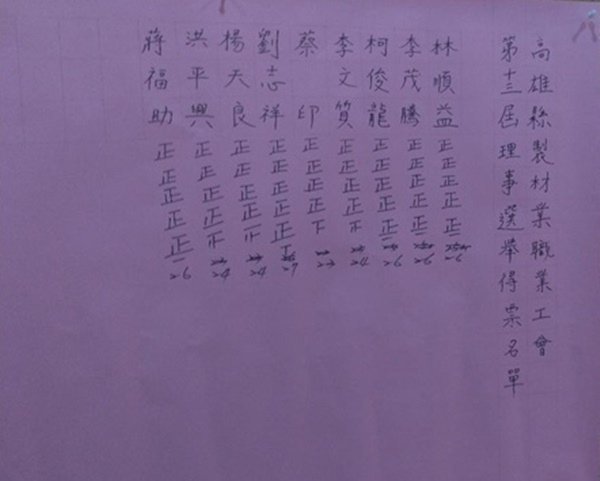 高雄縣製材業職業工會
第十三屆理事選舉得票名單
林順益 正正正正正一 26
李茂騰 正正正正正一 26
柯俊龍 正正正正正一 26
李文質 正正正正 24
蔡印 正正正正下
劉志祥 正正正正正丅 27
楊天良 正正正正 24
洪平興 正正正正 24
蔣福助 正正正正正一 26